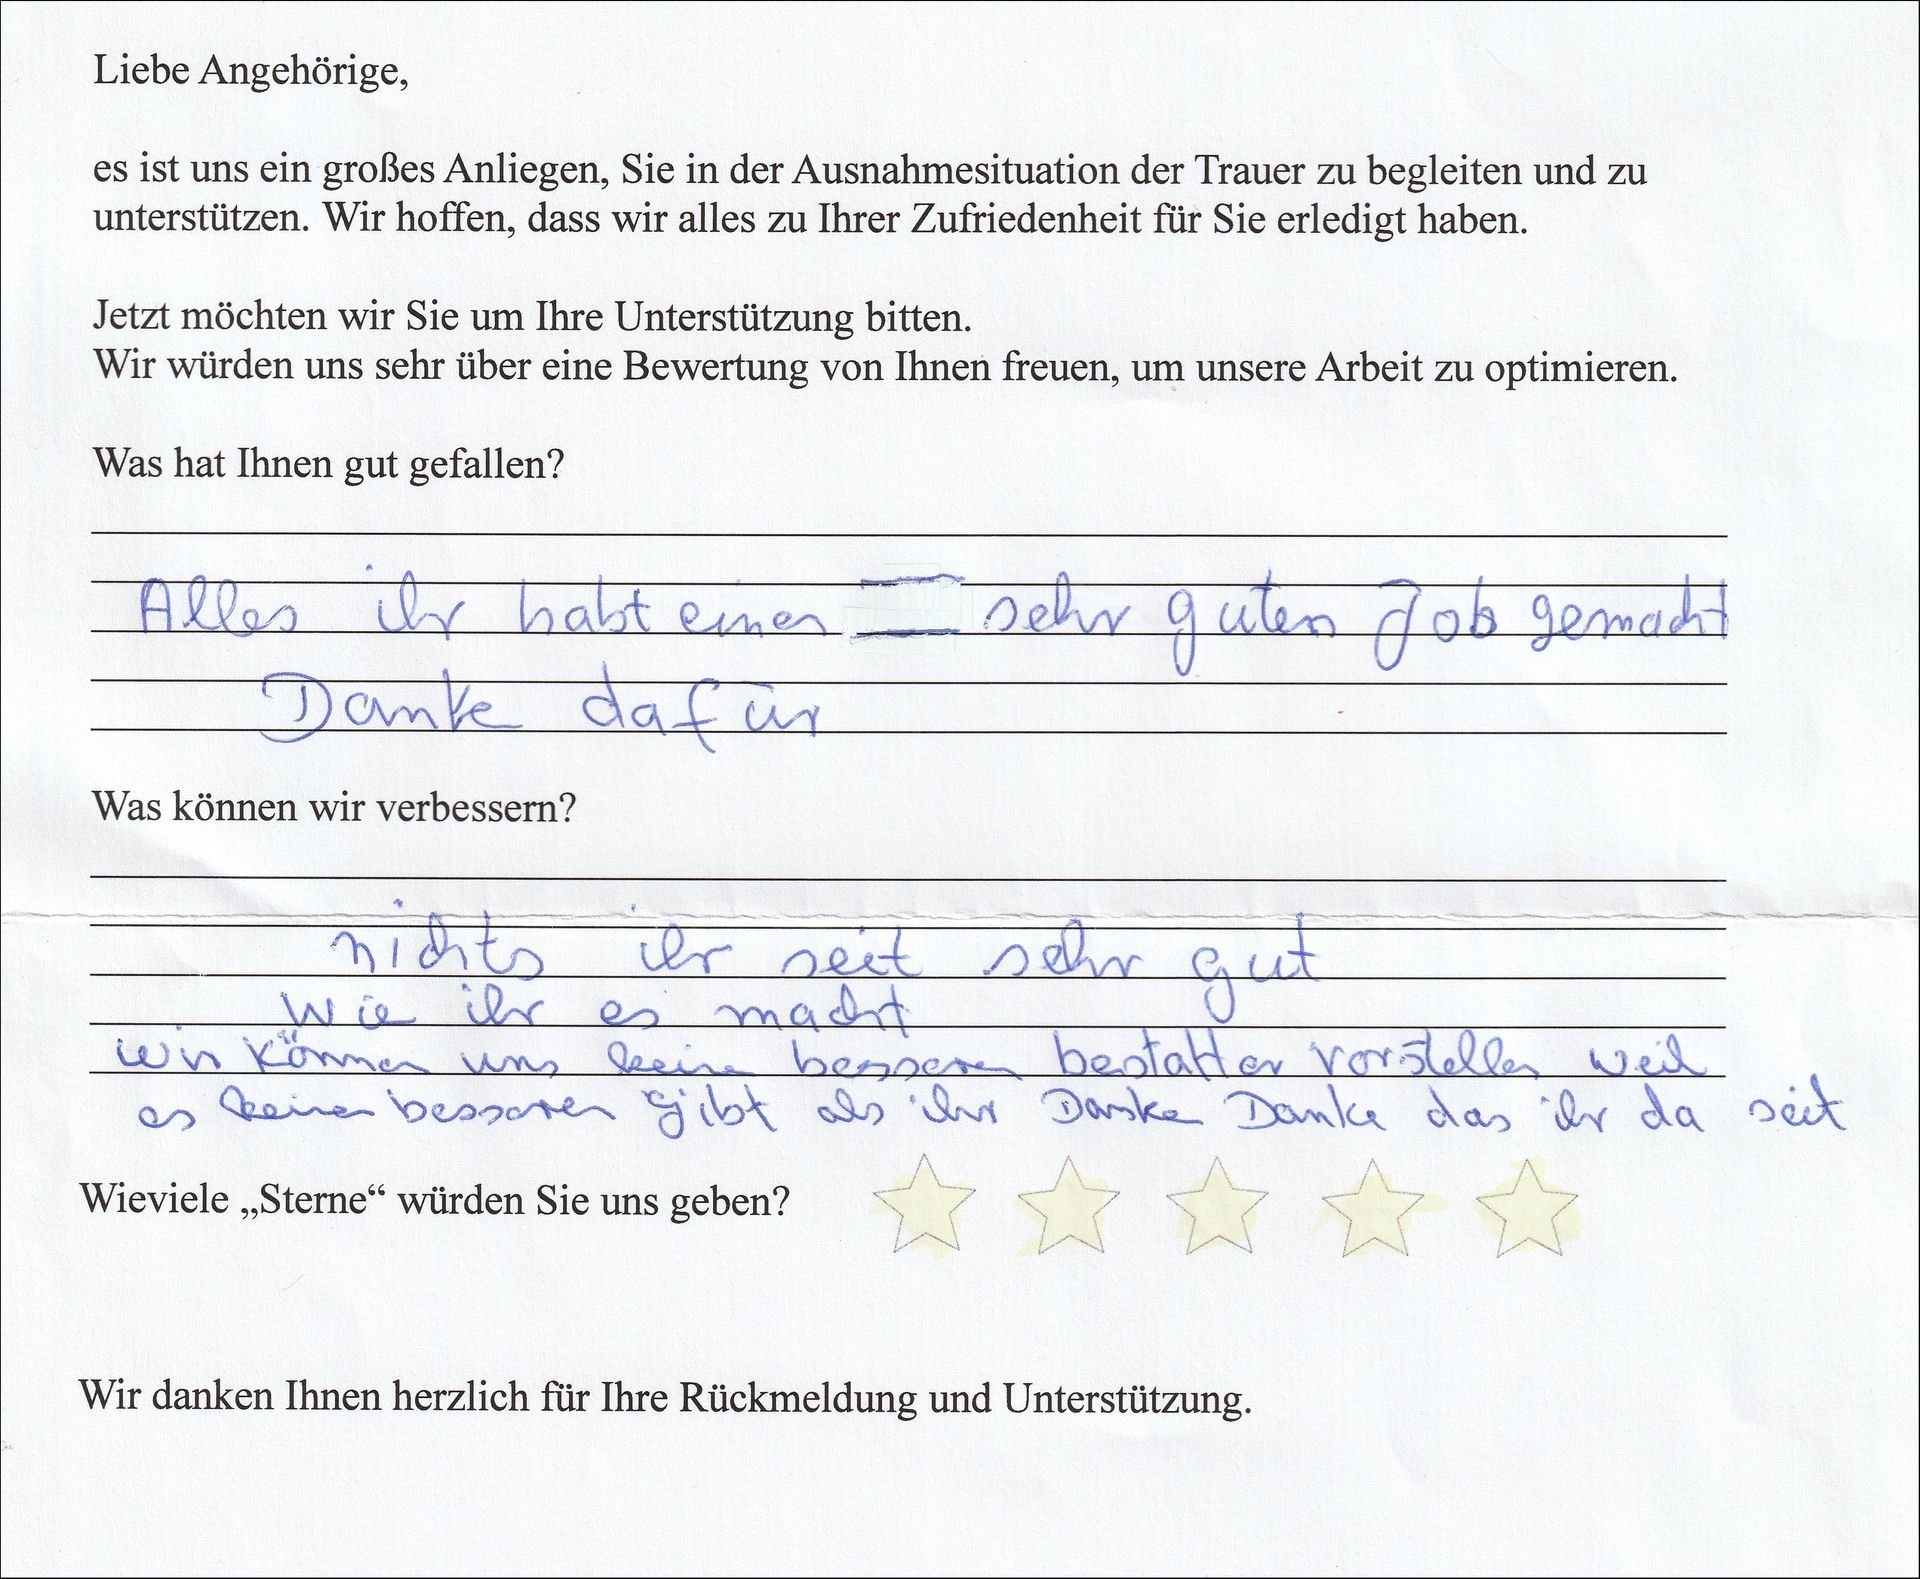 Liebe Angehörige,
es ist uns ein großes Anliegen, Sie in der Ausnahmesituation der Trauer zu begleiten und zu
unterstützen. Wir hoffen, dass wir alles zu Ihrer Zufriedenheit für Sie erledigt haben.
Jetzt möchten wir Sie um Ihre Unterstützung bitten.
Wir würden uns sehr über eine Bewertung von Ihnen freuen, um unsere Arbeit zu optimieren.
Was hat Ihnen gut gefallen?
Alles ihr habt einen sehr guten Job gemacht
Danke dafür
Was können wir verbessern?
nichts ihr seit sehr gut
wie ihr es macht
wir können uns keine besseren bestatter vorstellen weil
es keinen besseren gibt als ihr Danke Danke das ihr da seit
Wieviele „Sterne“ würden Sie uns geben?
Wir danken Ihnen herzlich für Ihre Rückmeldung und Unterstützung.